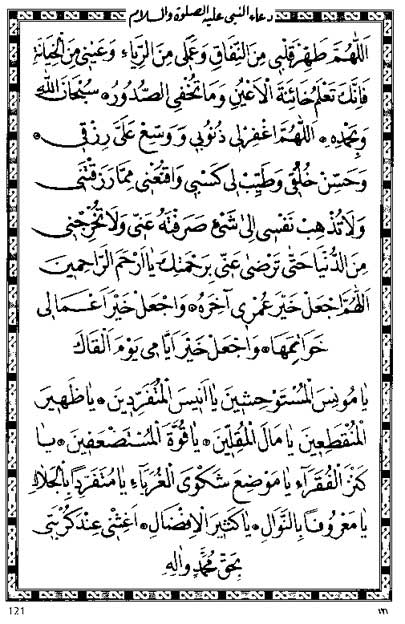 دعاء النبى عليه الصلوة والسلام
اَللّٰهُمَّ طَهِّرْ قَلْبِي مِنَ النِّفَاقِ وَعَمَلِي مِنَ الرِّيَاءِ وَعَيْنِي مِنَ الْخِيَانَةِ
فَاِنَّكَ تَعْلَمُ خَائِنَةَ الْاَعْيُنِ وَمَا تُخْفِي الصُّدُورُ سُبْحَانَ اللّٰهِ
وَبِحَمْدِهِ اَللّٰهُمَّ اغْفِرْ لِي ذُنُوبِي وَوَسِّعْ عَلَيَّ رِزْقِي
وَحَسِّنْ خُلُقِي وَطَيِّبْ لِي كَسْبِي وَاقْنِعْنِي مِمَّا رَزَقْتَنِي
وَلَا تُذْهِبْ نَفْسِي اِلٰى شَيْءٍ صَرَفْتَهُ عَنِّي وَلَا تُخْرِجْنِي
مِنَ الدُّنْيَا حَتّٰى تَرْضٰى عَنِّي بِرَحْمَتِكَ يَا اَرْحَمَ الرَّاحِمِينَ
اَللّٰهُمَّ اجْعَلْ خَيْرَ عُمْرِي آخِرَهُ وَاجْعَلْ خَيْرَ اَعْمَالِي
خَوَاتِمَهَا وَاجْعَلْ خَيْرَ اَيَّامِي يَوْمَ اَلْقَاكَ
يَا مُونِسَ الْمُسْتَوْحِشِينَ يَا اَنِيسَ الْمُتَفَرِّدِينَ يَا ظَهِيرَ
الْمُنْقَطِعِينَ يَا مَالَ الْمُقِلِّينَ يَا قُوَّةَ الْمُسْتَضْعَفِينَ يَا
كَنْزَ الْفُقَرَاءِ يَا مَوْضِعَ شَكْوَى الْغُرَبَاءِ يَا مُتَفَرِّدًا بِالْجَلَالِ
يَا مَعْرُوفًا بِالنَّوَالِ يَا كَثِيرَ الْاِفْضَالِ اَغِثْنِي عِنْدَ كُرْبَتِي
بِحَقِّ مُحَمَّدٍ وَاٰلِهِ
121 ١٢١